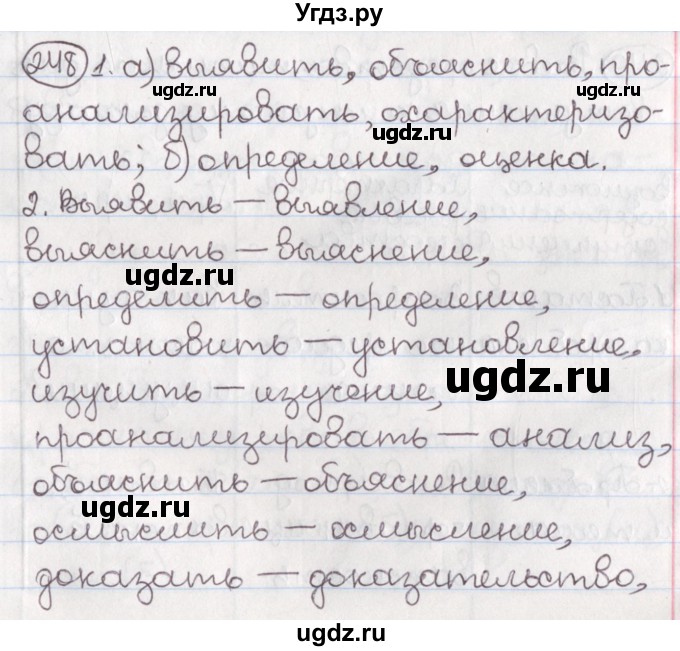 Угдз.ру
248 1. а) выявить, объяснить, про-
анализировать, охарактеризо-
вать; б) определение, оценка.
2. Выявить — выявление,
выяснить — выяснение,
определить — определение,
установить — установление,
изучить — изучение,
проанализировать — анализ,
объяснить — объяснение,
осмыслить — осмысление,
доказать — доказательство,
ugdz.ru
ugdz.ru
ugdz.ru
ugdz.ru
ugdz.ru
ugdz.ru
ugdz.ru
ugdz.ru
ugdz.ru